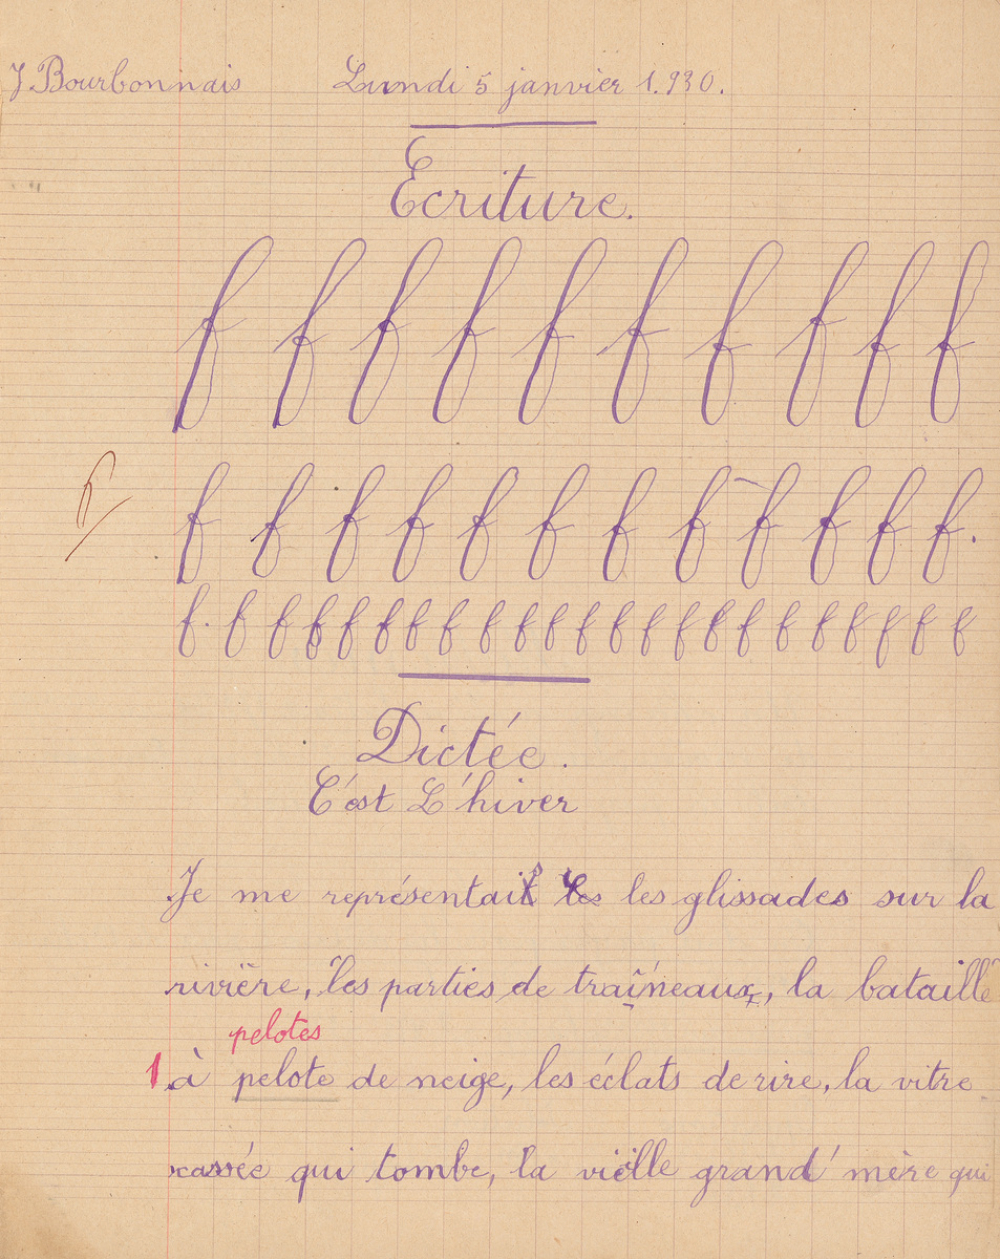 J. Bourbonnais Lundi 5 janvier 1.930.
Ecriture.
f f f f f f f f f f
f f f f f f f f f f f f.
f. f f f f f f f f f f f f f f f f f f f f f f f
Dictée.
C'est L'hiver
Je me représentais les les glissades sur la
rivière, les parties de traîneaux, la bataille
pelotes
1 à pelote de neige, les éclats de rire, la vitre
cassée qui tombe, la vielle grand' mère qui